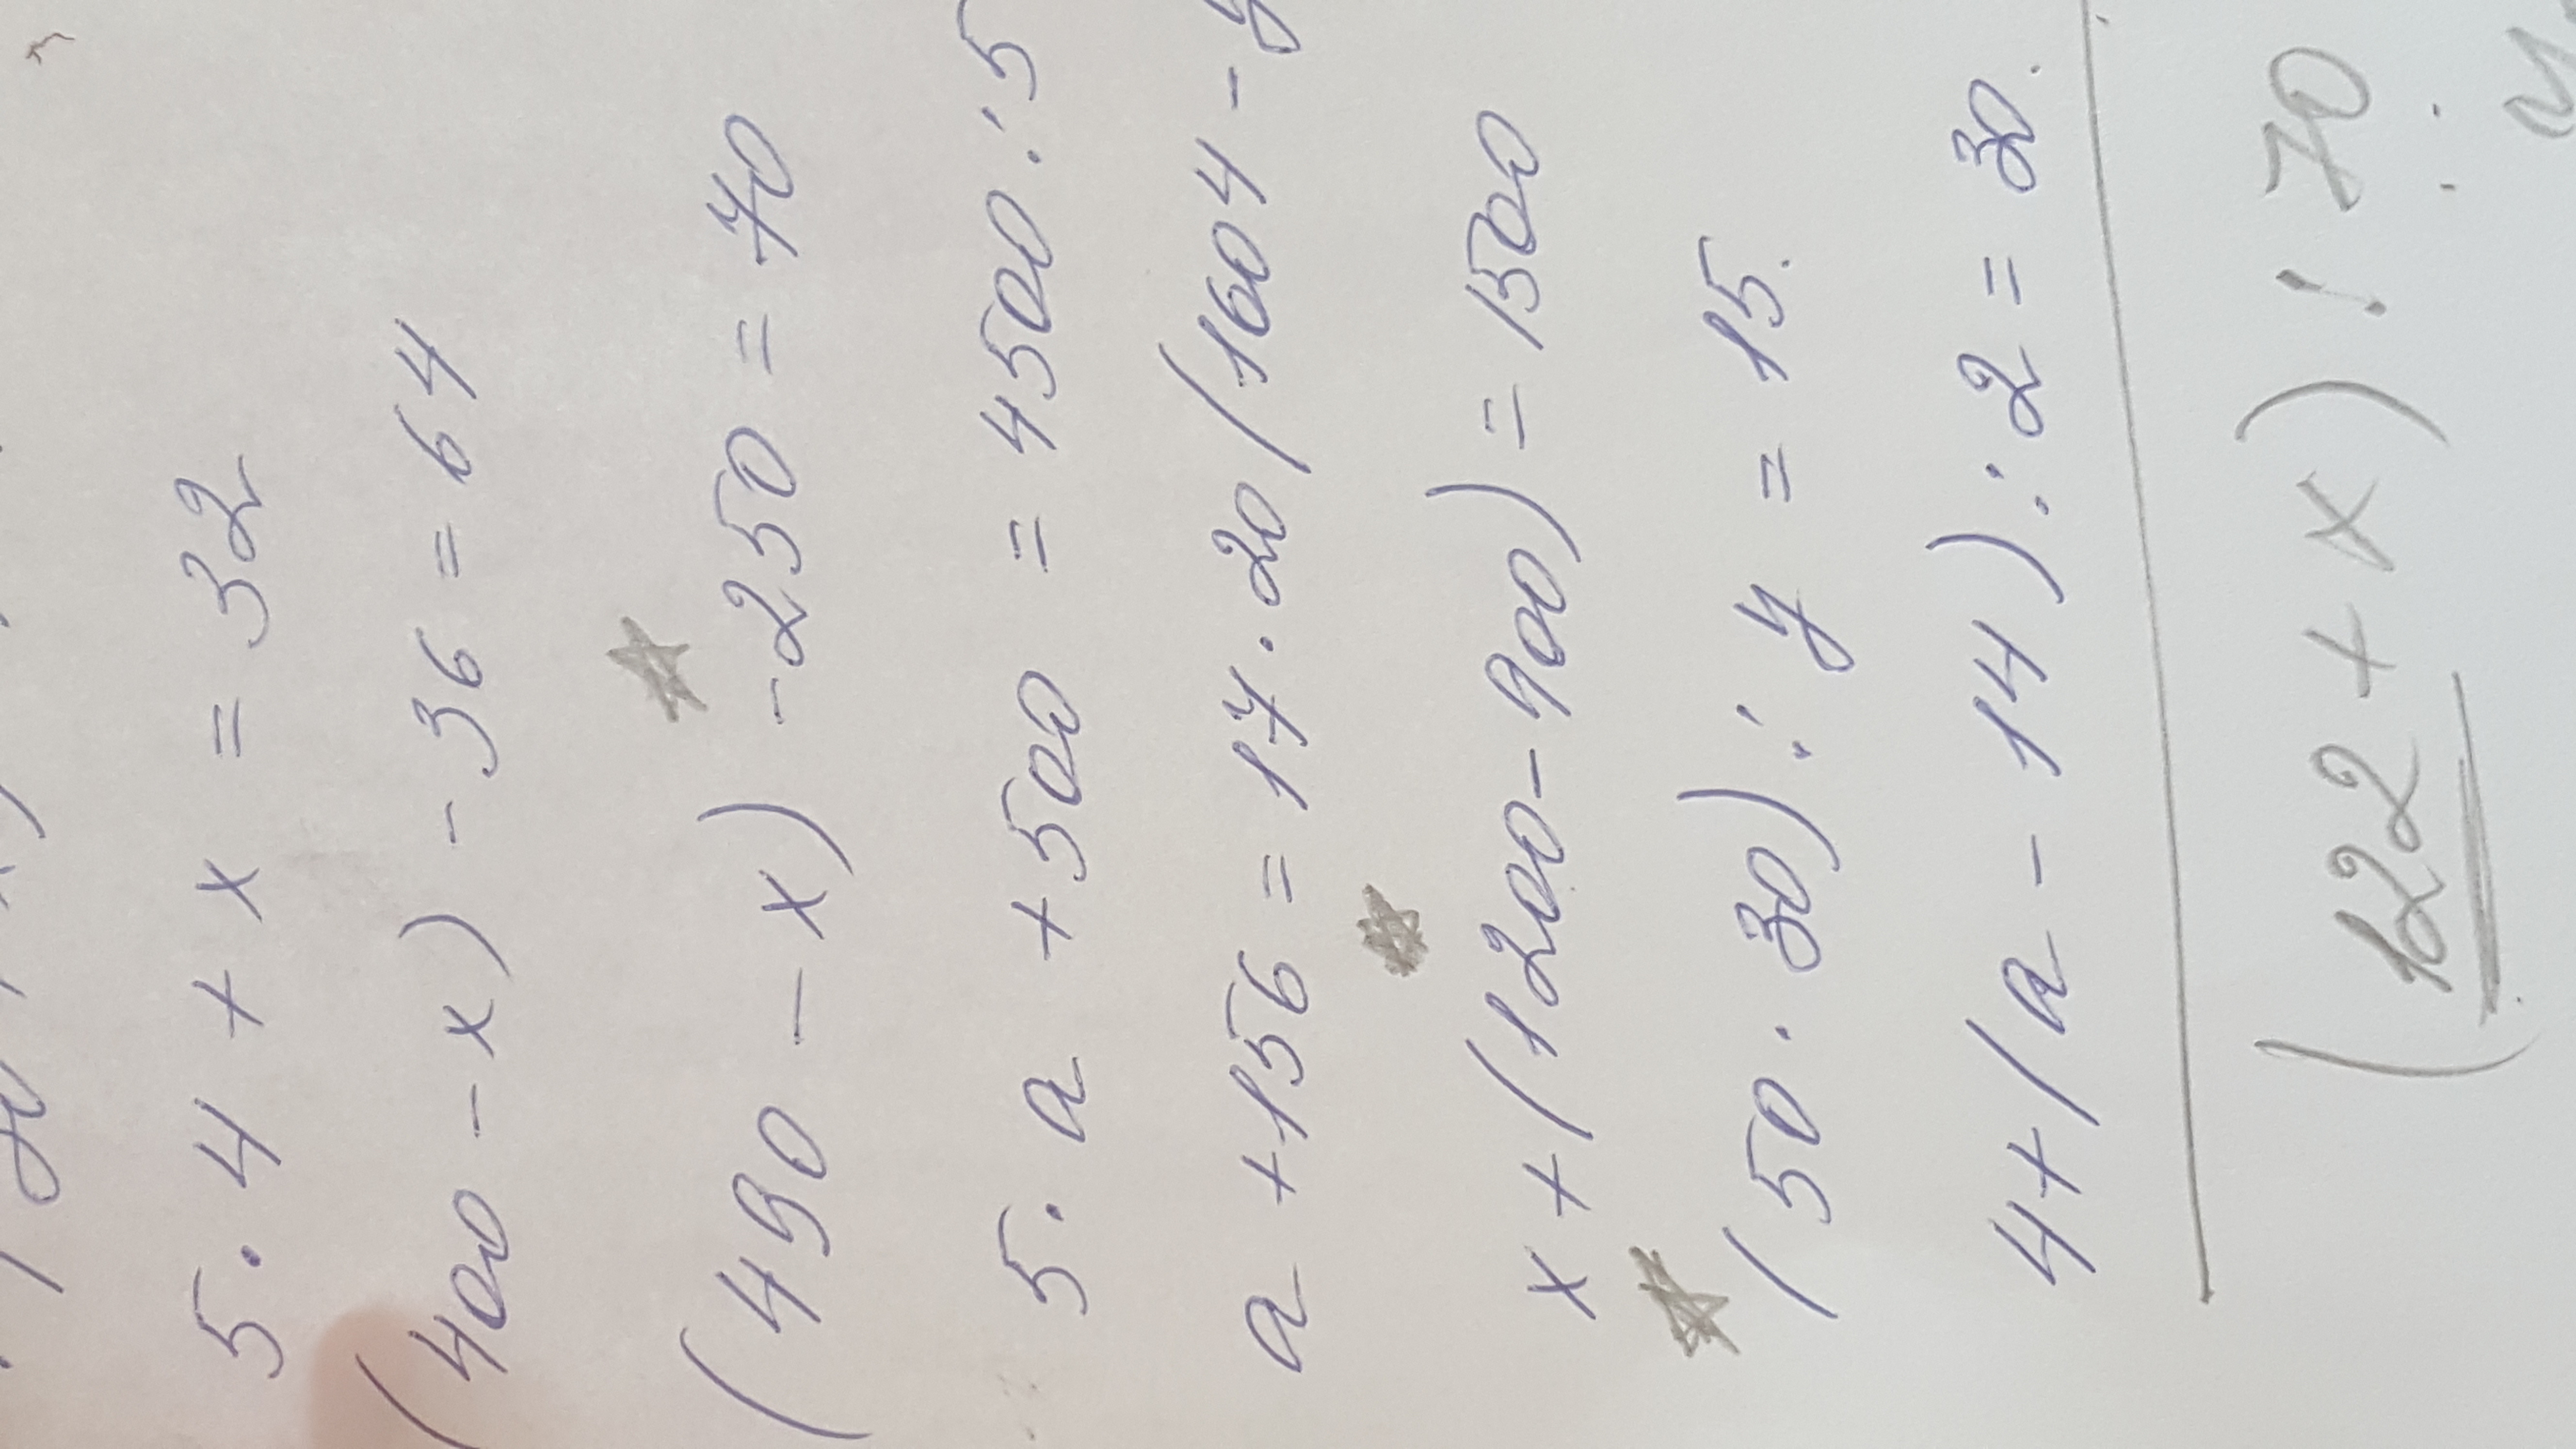 5 · 4 + x = 32
(400 - x) - 36 = 64
(490 - x) - 250 = 70
5 · a + 500 = 4500 : 5
a + 156 = 17 · 20 (1604 - y
x + (1200 - 900) = 1500
(50 · 30) : y = 15.
4 + (a - 14) : 2 = 30.
(122 + x) : 70